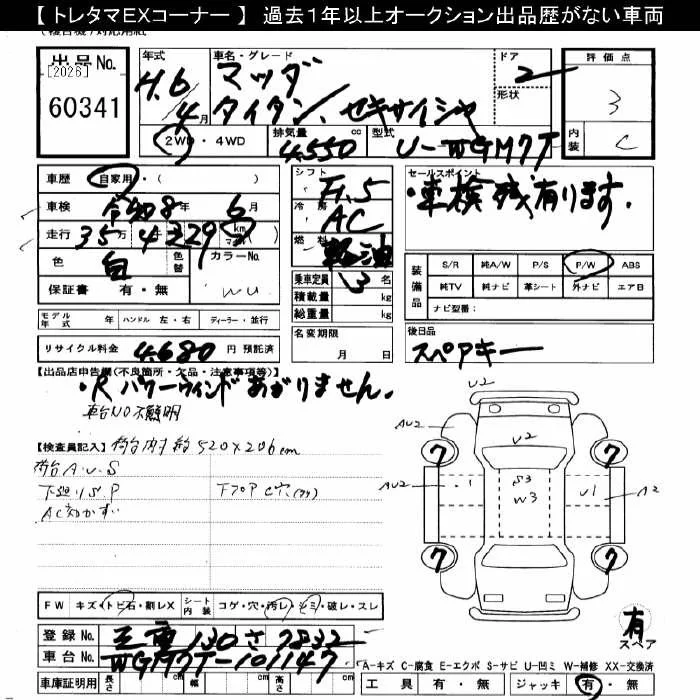 【 トレタマEXコーナー 】 過去1年以上オークション出品歴がない車両
出品No.
[2026]
60341
年式
H.6
4月
車名・グレード
マツダ
タイタン、セキサイシャ
ドア
2
形状
評価点
3
内装
C
2WD・4WD
排気量
4550 cc
型式
U-WGM7T
車歴 自家用・( )
車検 令和8年 6月
走行 35万4329 km
マイル
色 白
色替
カラーNo.
WU
保証書 有・無
シフト
F1.5
冷房
AC
燃料
軽油
乗車定員 3 名
積載量 kg
総重量 kg
セールスポイント
・車検残有ります.
装備品
S/R 純A/W P/S P/W ABS
純TV 純ナビ 革シート 外ナビ エアB
ナビ型番:
モデル年式 年 ハンドル 左・右 ディーラー・並行
リサイクル料金 4,680 円 預託済
名変期限
月 日
後日品
スペアキー
【出品店申告欄(不良箇所・欠品・注意事項等)】
・R パワーウィンドあがりません.
車台NO不鮮明
【検査員記入】荷台内寸 約520×206cm
荷台 A.U.S
下廻りS.P
下フロアC穴
U2
AU2
U2
7
7
AU2
・1
S3
W3
U1
A2
7
7
有
スペア
FW キズ・トビ石・割レX シート内装 コゲ・穴・汚レ・シミ・破レ・スレ
登録No. 三重 130 さ 7832
車台No. WGM7T-101147
車庫証明用 長さ 幅 高さ
A-キズ C-腐食 E-エクボ S-サビ U-凹ミ W-補修 XX-交換済
工具 有・無 ジャッキ 有・無